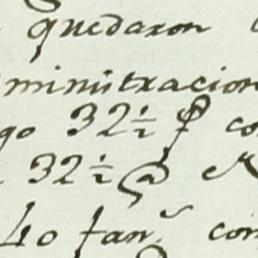 quedaron
ministracion
go 32½ p co
32½ @
40 fan.s con